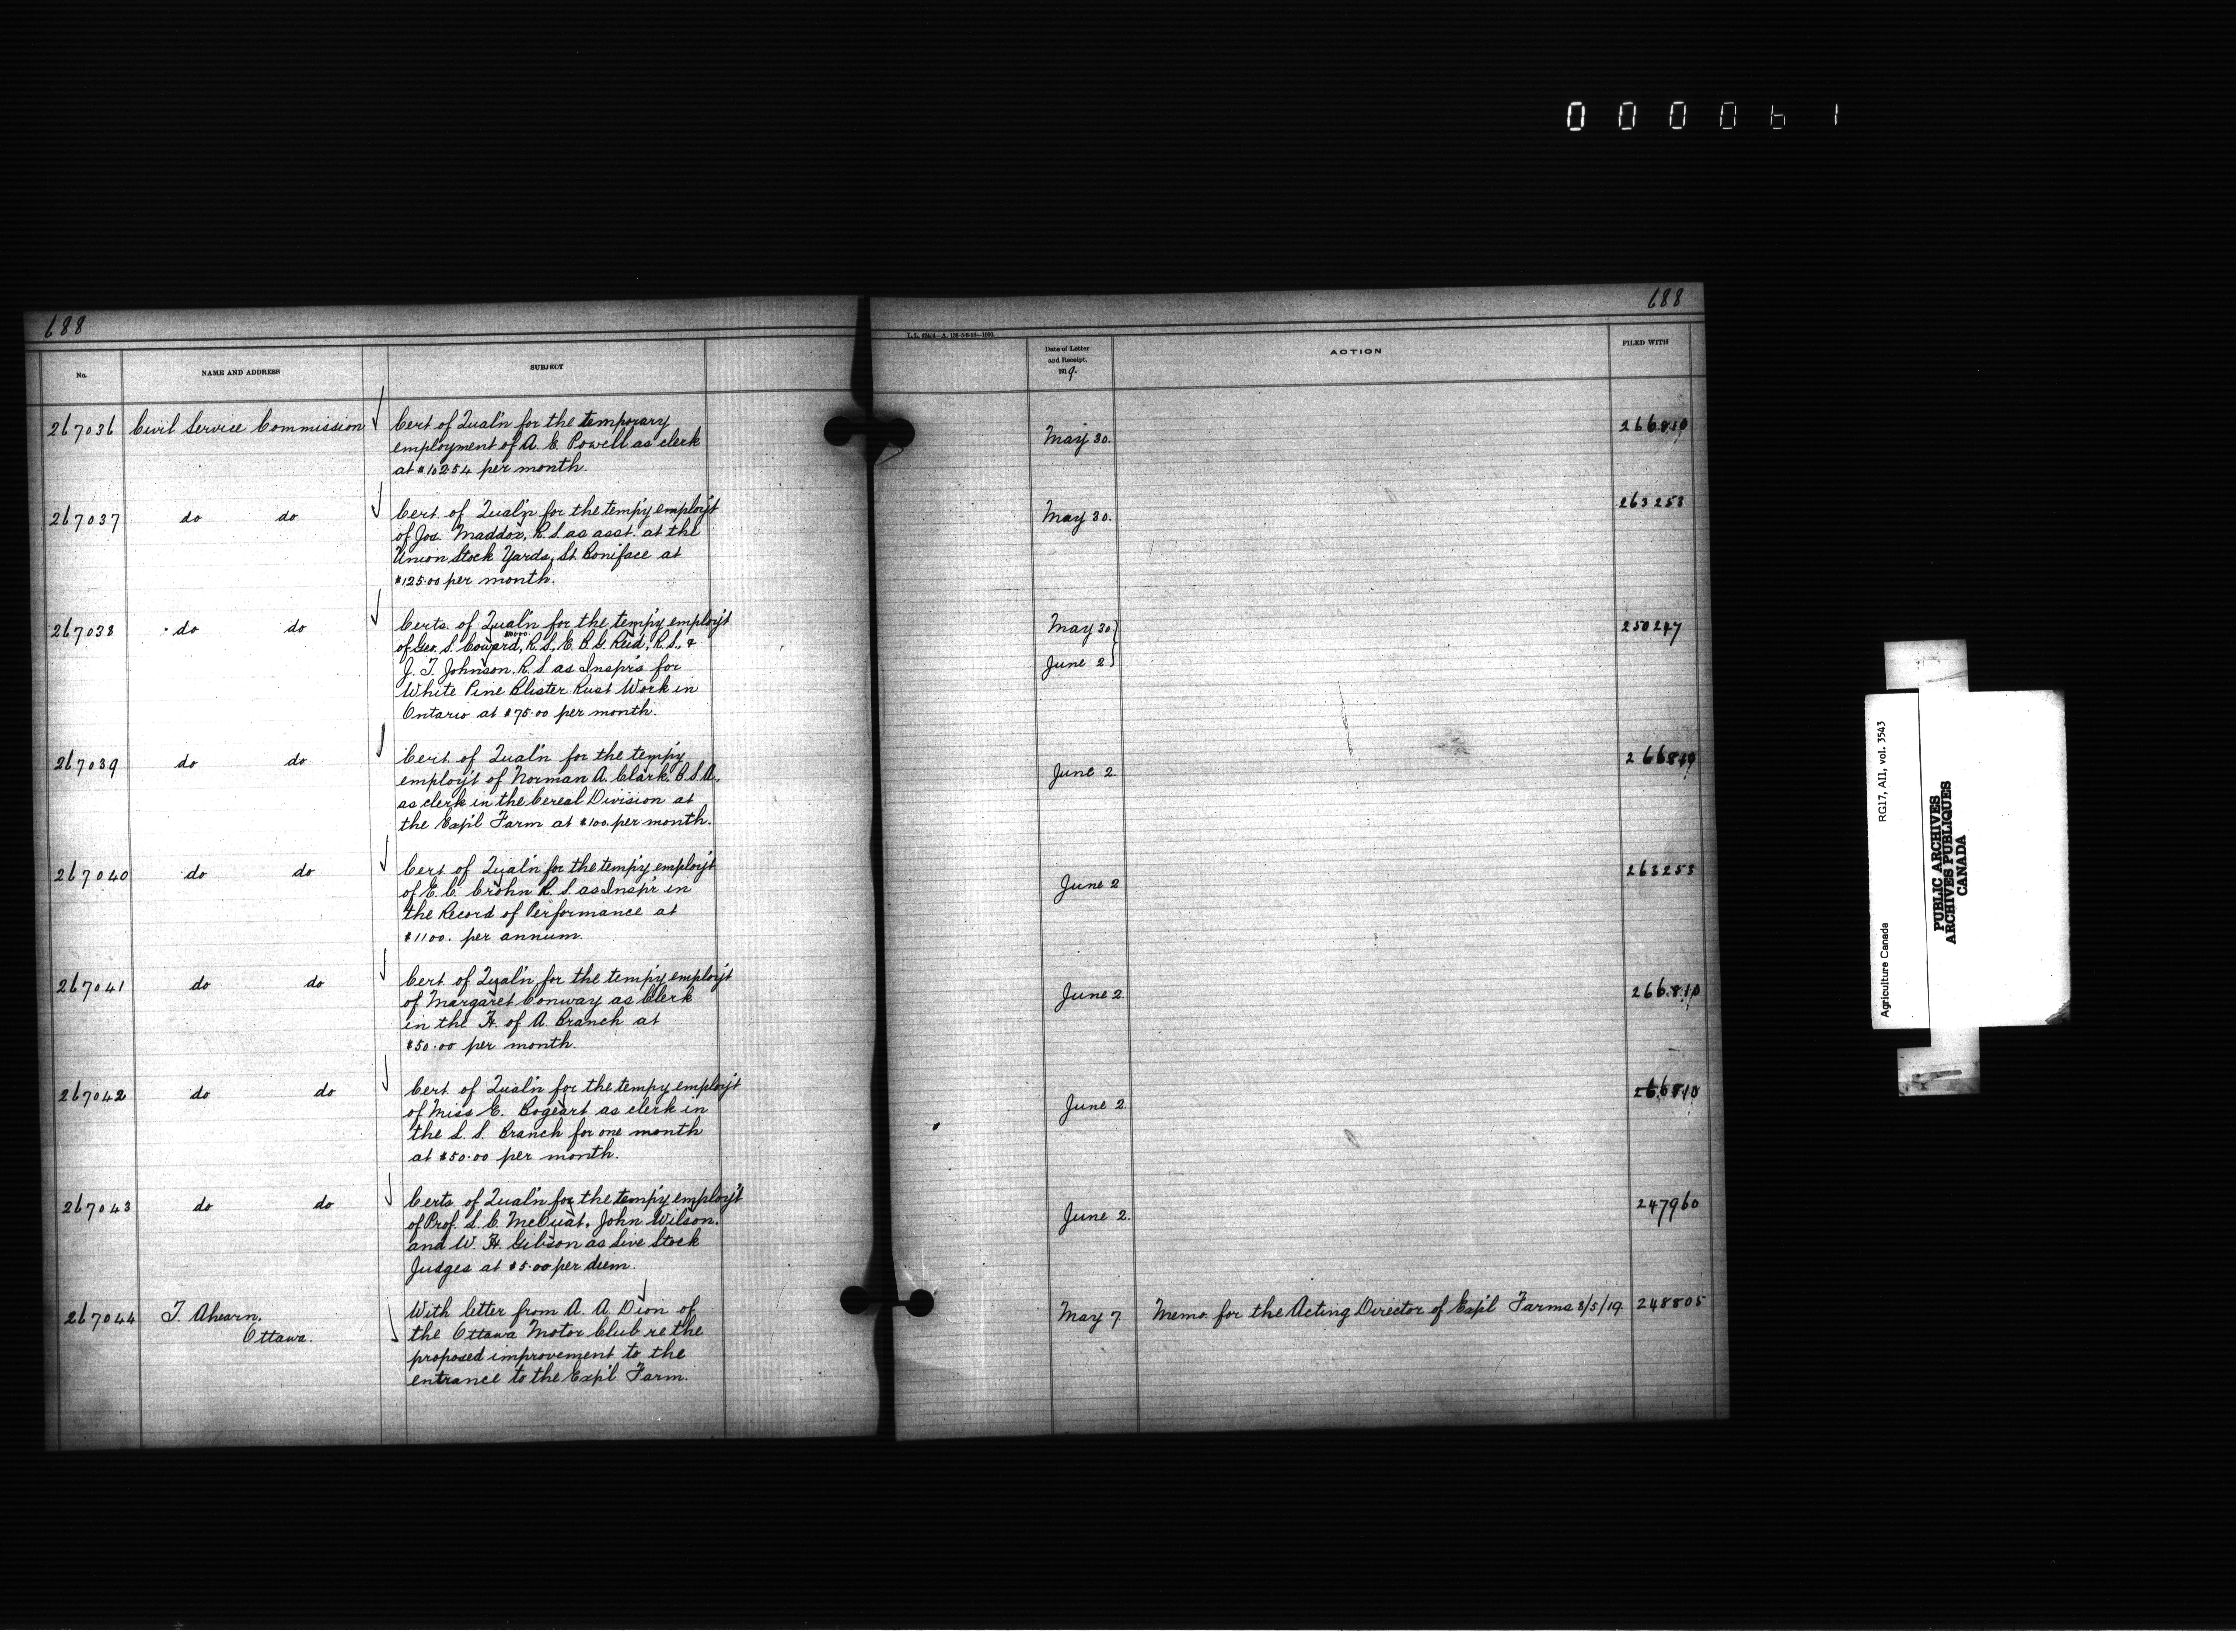 000061
688
688
No.
NAME AND ADDRESS
SUBJECT
Date of Letter
and Receipt,
1919.
ACTION
FILED WITH
267036 Civil Service Commission
Cert of Qual'n for the temporary
employment of A. E. Powell as clerk
at $102.54 per month.
May 30.
266810
267037 do do
Cert. of Qual'n for the temp'y employ't
of Jos. Maddox, R.S. as asst. at the
Union Stock Yards, St. Boniface at
$125.00 per month.
May 30.
263253
267038 do do
Certs. of Qual'n for the temp'y employ't
of Geo. S. Coward, R.S., E. B. G. Reid, R.S., &
J. T. Johnson, R.S. as Insp'rs for
White Pine Blister Rust Work in
Ontario at $75.00 per month.
May 30
June 2
250247
267039 do do
Cert. of Qual'n for the temp'y
employ't of Norman A. Clark, B.S.A.,
as clerk in the Cereal Division at
the Exp'l Farm at $100. per month.
June 2.
266810
267040 do do
Cert. of Qual'n for the temp'y employ't
of E. C. Crohn R.S. as Insp'r in
the Record of Performance at
$1100. per annum.
June 2
263253
267041 do do
Cert. of Qual'n for the temp'y employ't
of Margaret Conway as Clerk
in the H. of A. Branch at
$50.00 per month.
June 2.
266810
267042 do do
Cert. of Qual'n for the tempy employ't
of Miss E. Bogeart as clerk in
the L. S. Branch for one month
at $50.00 per month.
June 2.
266810
267043 do do
Certs. of Qual'n for the temp'y employ't
of Prof. L. C. McOuat, John Wilson,
and W. H. Gibson as Live Stock
Judges at $5.00 per diem.
June 2.
247960
267044 T. Ahearn,
Ottawa.
With letter from A. A. Dion of
the Ottawa Motor Club re the
proposed improvement to the
entrance to the Exp'l Farm.
May 7
Memo. for the Acting Director of Exp'l Farms 8/5/19.
248805
Agriculture Canada
RG17, AII, vol. 3543
PUBLIC ARCHIVES
ARCHIVES PUBLIQUES
CANADA